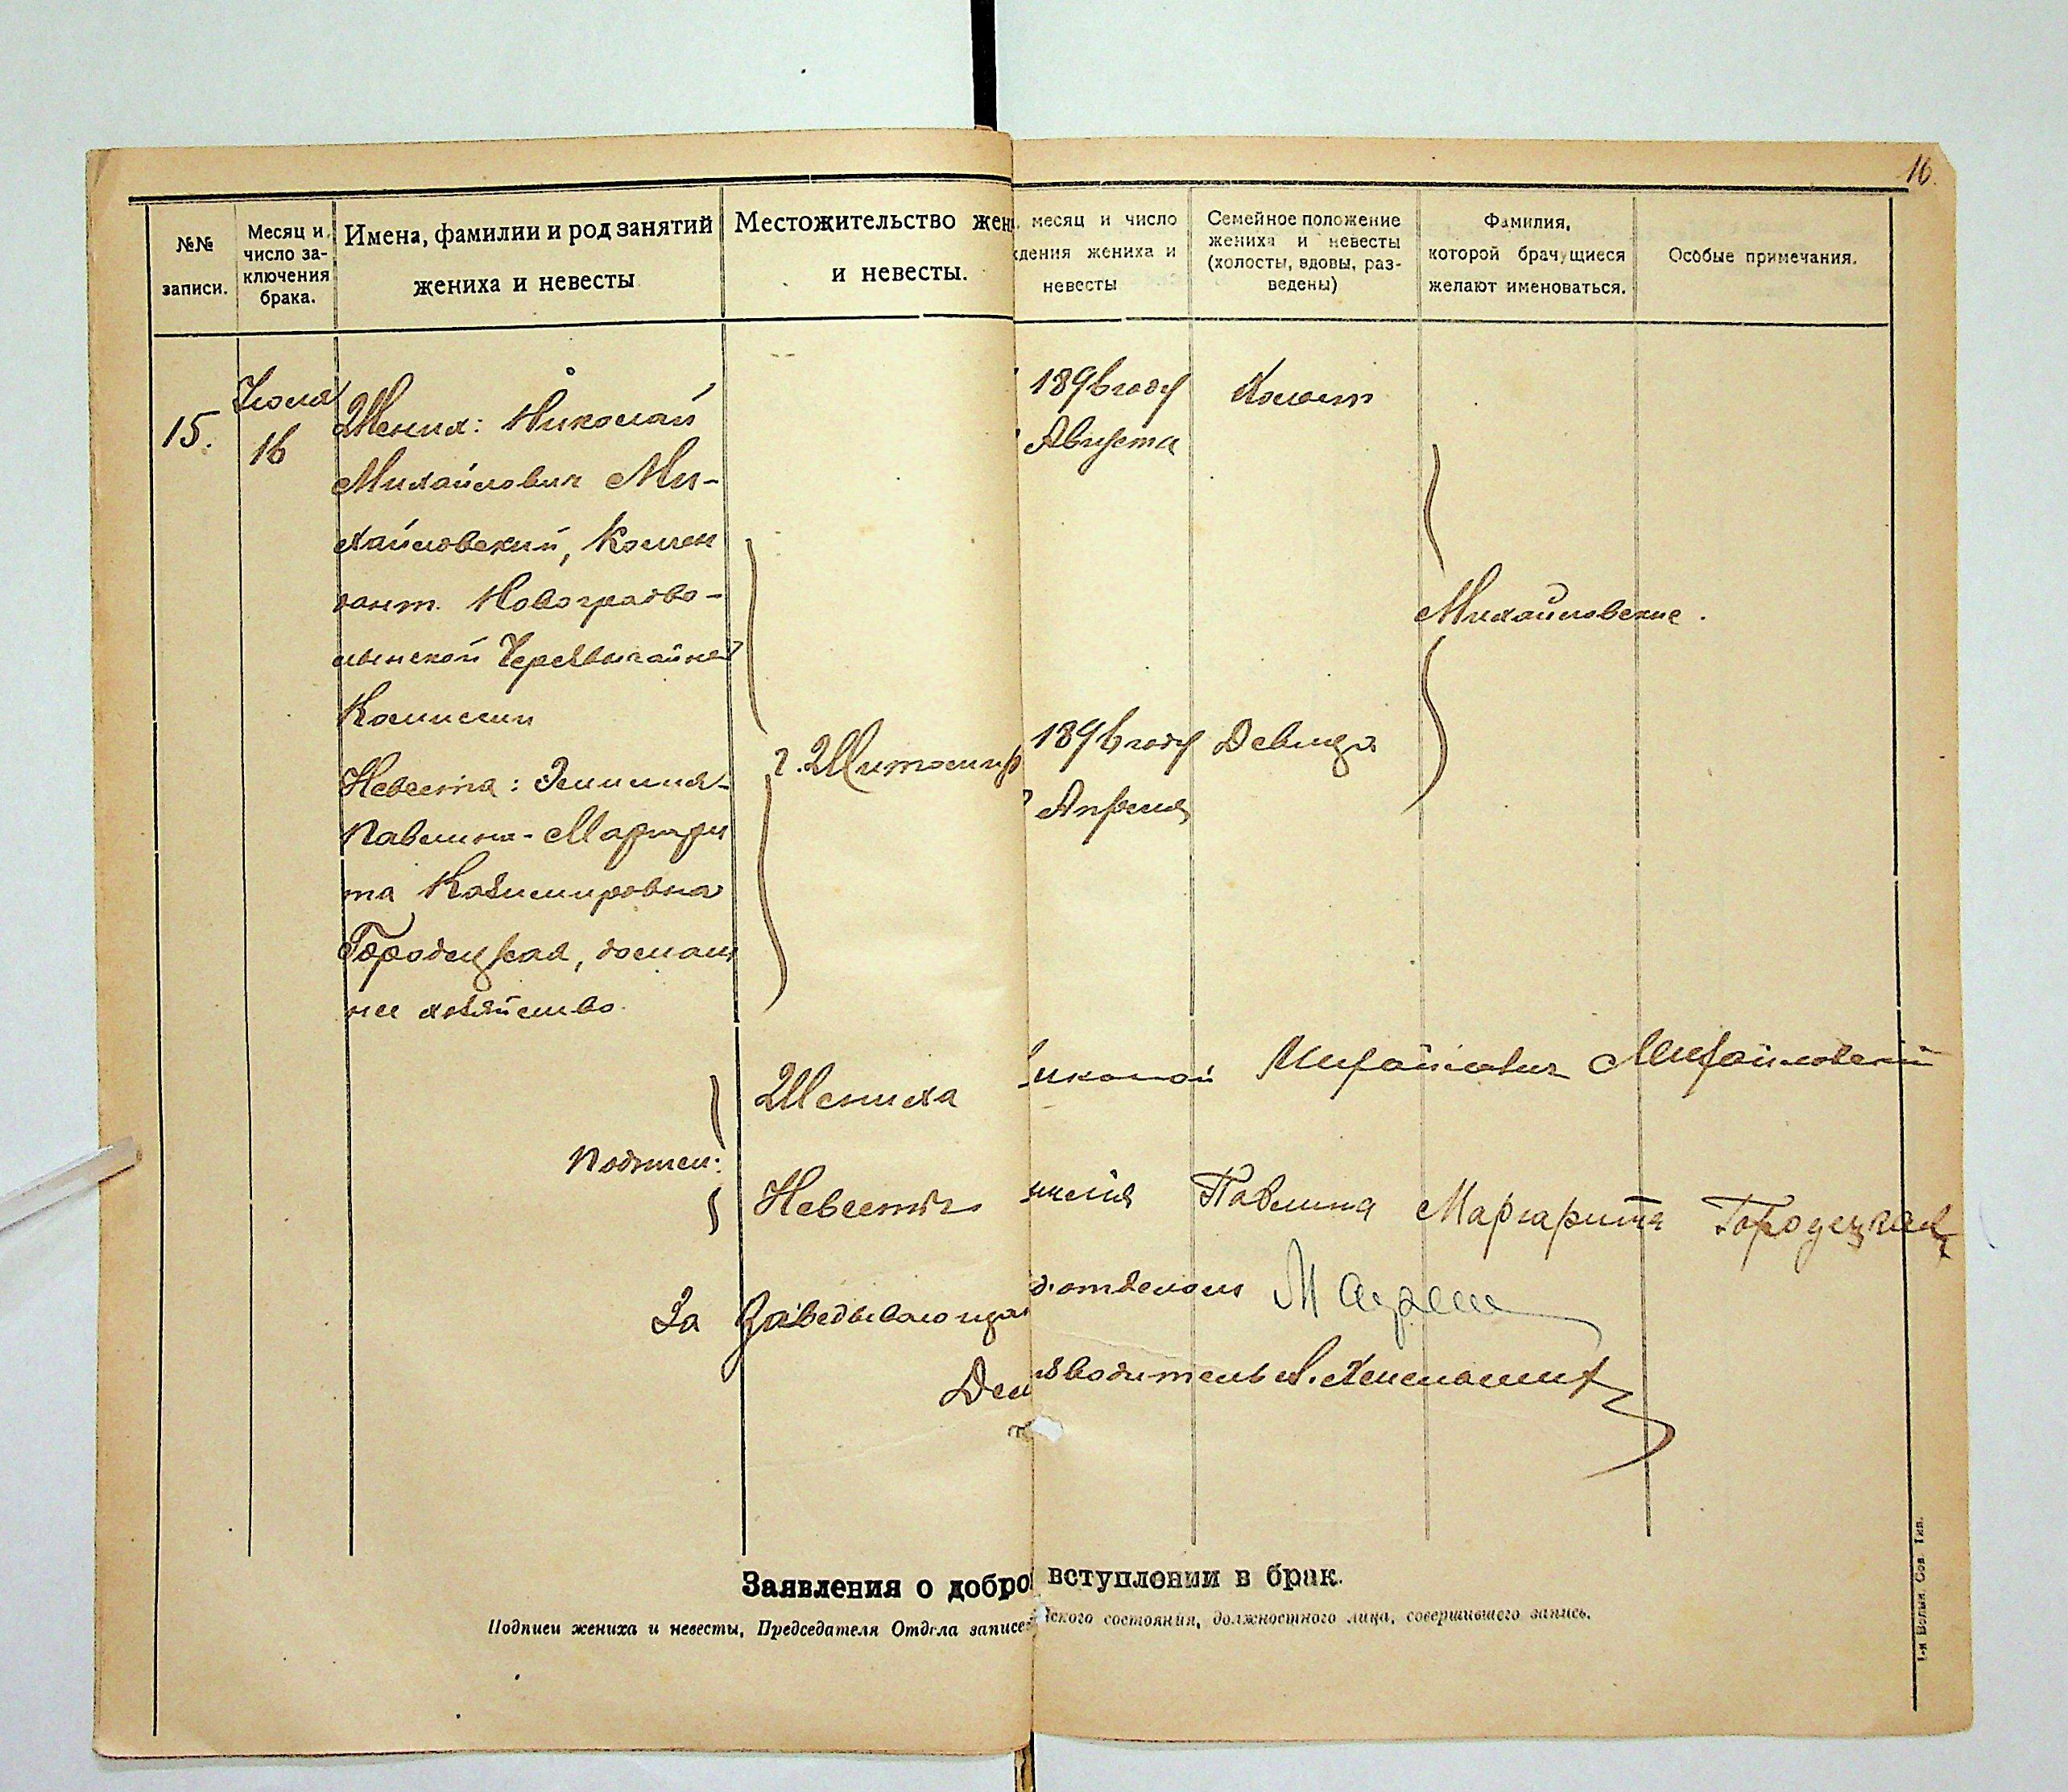 16.
№№
записи.
Месяц и
число за-
ключения
брака.
Имена, фамилии и род занятий
жениха и невесты
Местожительство жен
и невесты.
месяц и число
ждения жениха и
невесты
Семейное положение
жениха и невесты
(холосты, вдовы, раз-
ведены)
Фамилия,
которой брачущиеся
желают именоваться.
Особые примечания.
15.
Июля
16
Жених: Николай
Михайлович Ми-
хайловский, Комен
дант Новоградво-
лынской Черезвычайной
Комиссии
Невеста: Эмилия-
Павлина-Маргари
та Казимировна
Городецкая, домаш
нее хозяйство
г. Житомир
1896 году
Августа
Холост
1896 году
Апреля
Девица
Михайловские.
Подписи:
Жениха
иколай Михайлович Михайловский
Невесты
милия Павлина Маргарита Городецкая
За Заведывающ д.отделом
Дел изводитель
Заявления о добро вступлении в брак.
Подписи жениха и невесты, Председателя Отдела записе нского состояния, должностного лица, совершившего запись.
1-я Волын. Сов. Тип.